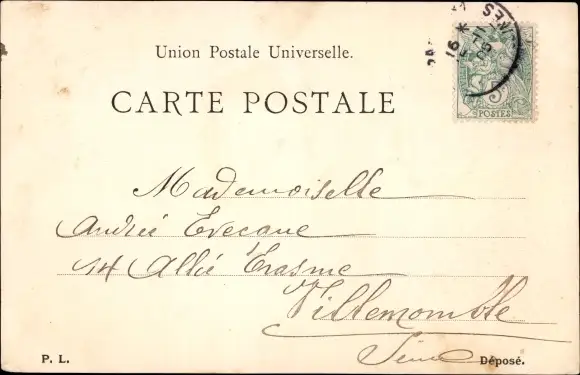 Union Postale Universelle.
CARTE POSTALE
5
POSTES
Mademoiselle
Andrée Evecque
14 Allée Erasme
Villemomble
Seine
P. L.
Déposé.